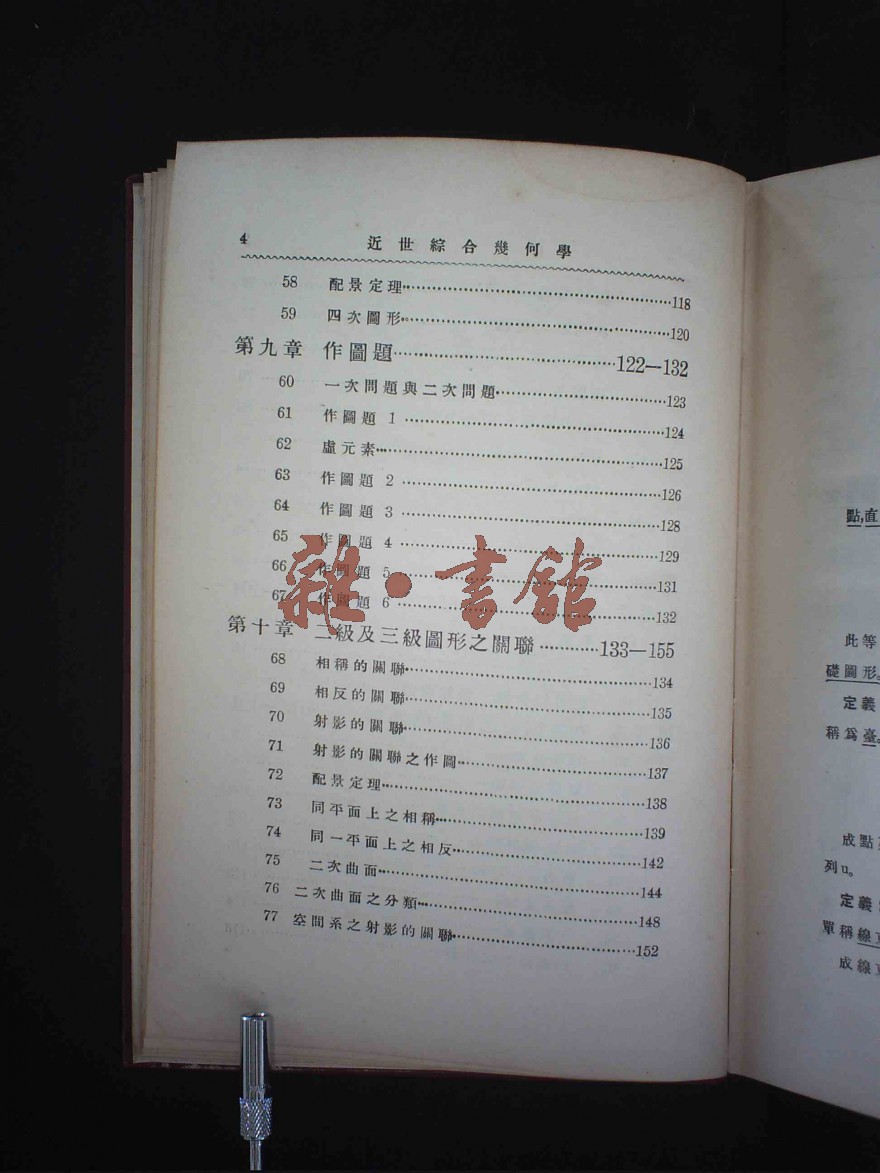 4 近世綜合幾何學
58 配景定理 118
59 四次圖形 120
第九章 作圖題 122—132
60 一次問題與二次問題 123
61 作圖題 1 124
62 虛元素 125
63 作圖題 2 126
64 作圖題 3 128
65 作圖題 4 129
66 作圖題 5 131
67 作圖題 6 132
第十章 二級及三級圖形之關聯 133—155
68 相稱的關聯 134
69 相反的關聯 135
70 射影的關聯 136
71 射影的關聯之作圖 137
72 配景定理 138
73 同平面上之相稱 139
74 同一平面上之相反 142
75 二次曲面 144
76 二次曲面之分類 148
77 空間系之射影的關聯 152
雜·書館
點,直
此等
礎圖形。
定義
稱爲臺。
成點
列u。
定義
單稱線
成線